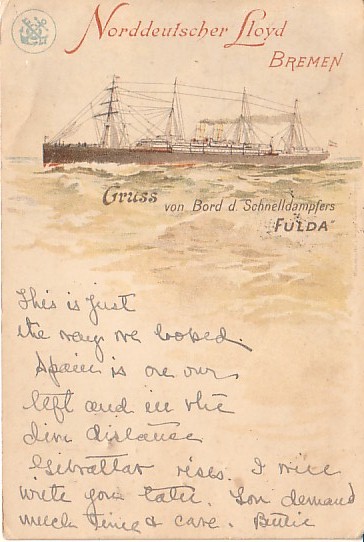 Norddeutscher Lloyd
BREMEN
Gruss von Bord d. Schnelldampfers
"FULDA"
This is just
the way we looked.
Spain is on our
left and in the
dim distance
Gibraltar rises. I will
write you later. You demand
much time & care.